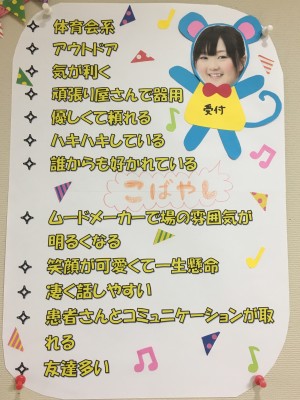 体育会系
アウトドア
気が利く
頑張り屋さんで器用
優しくて頼れる
ハキハキしている
誰からも好かれている
受付
こばやし
ムードメーカーで場の雰囲気が
明るくなる
笑顔が可愛くて一生懸命
凄く話しやすい
患者さんとコミュニケーションが取
れる
友達多い